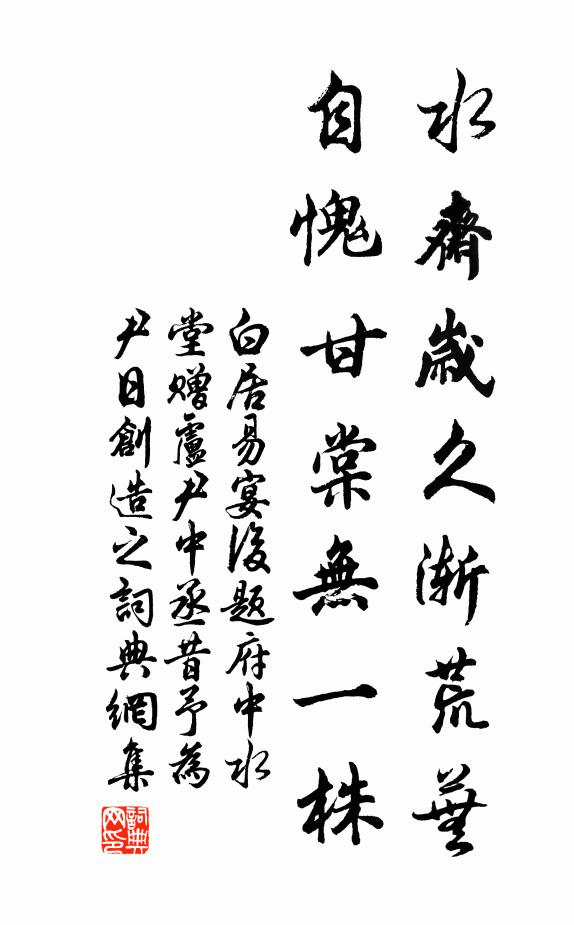 水齋歲久漸荒蕪
自愧甘棠無一株
白居易宴後題府中水
堂贈盧尹中丞昔予為
尹日創造之詞典網集
詞典
网印